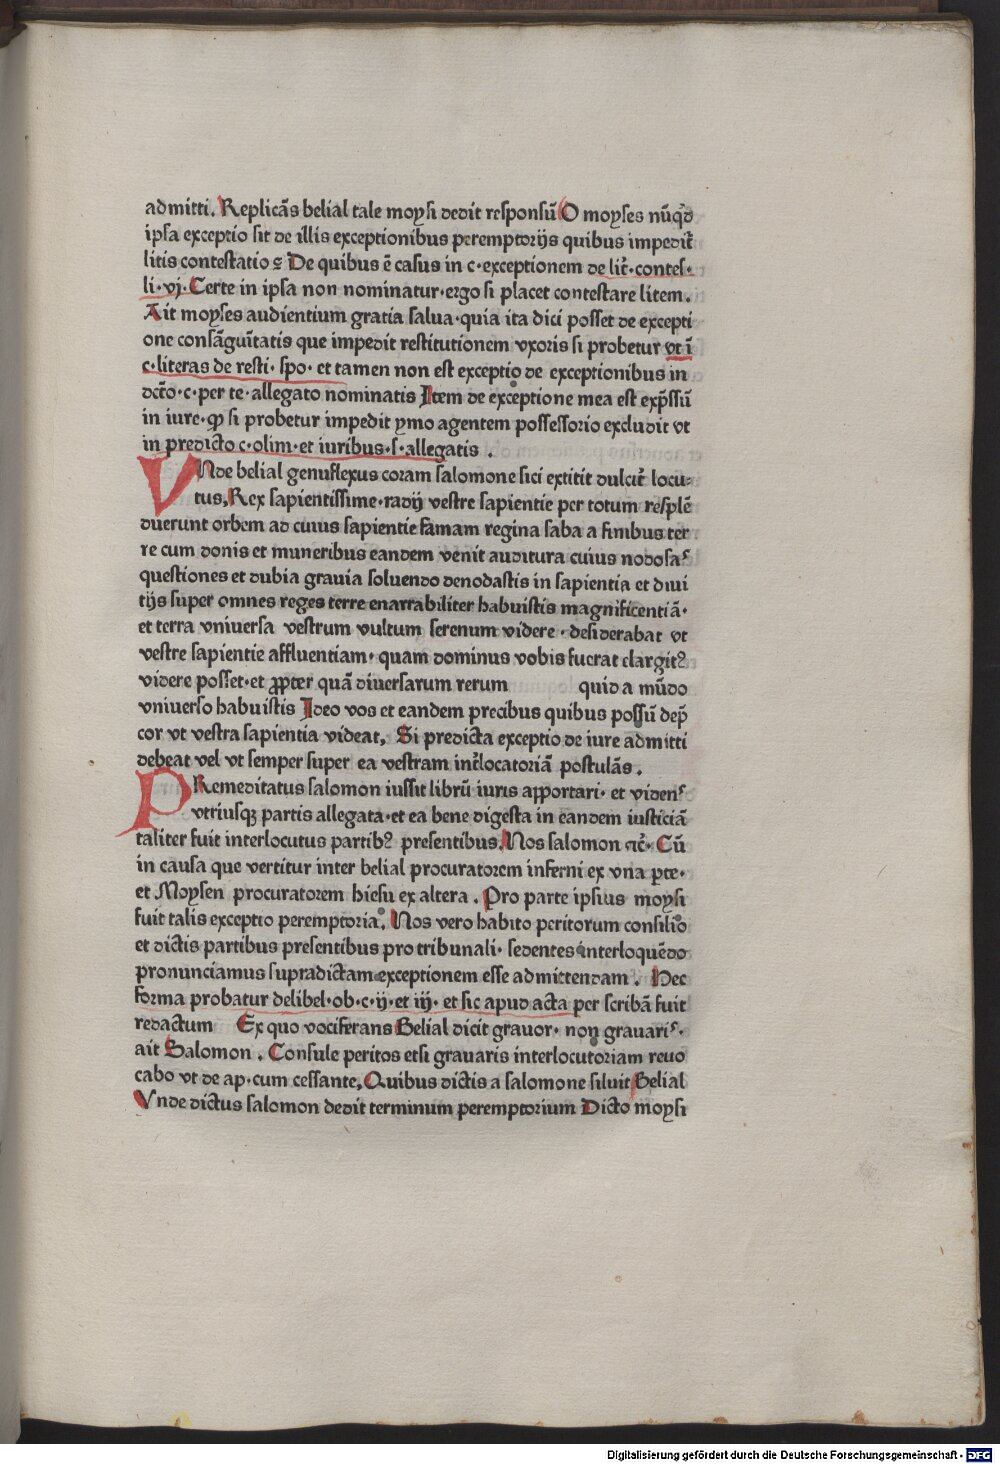 admitti. Replicãs belial tale moysi dedit responsũ O moyses nũqd
ipsa exceptio sit de illis exceptionibus peremptorijs quibus impedit
litis contestatio ꝛ De quibus ẽ casus in c·exceptionem de lit̃·contes·
li·vj·Certe in ipsa non nominatur·ergo si placet contestare litem.
Ait moyses audientium gratia salua·quia ita dici posset de excepti
one consãguĩtatis que impedit restitutionem vxoris si probetur vt ĩ
c·literas de resti·spo· et tamen non est exceptio de exceptionibus in
dc̃to·c·per te·allegato nominatis Item de exceptione mea est exp̃ssũ
in iure·ꝙ si probetur impedit ymo agentem possessorio excludit vt
in predicto c·olim·et iuribus·s·allegatis .
VNde belial genuflexus coram salomone sici extitit dulcit̃ locu-
tus, Rex sapientissime·radij vestre sapientie per totum resplẽ
duerunt orbem ad cuius sapientie famam regina saba a finibus ter
re cum donis et muneribus eandem venit auditura cuius nodosaˢ
questiones et dubia grauia soluendo denodastis in sapientia et diui
tijs super omnes reges terre enarrabiliter habuistis magnificentiã·
et terra vniuersa vestrum vultum serenum videre·desiderabat vt
vestre sapientie affluentiam·quam dominus vobis fuerat elargitꝰ
videre posset·et ꝓpter quã diuersarum rerum quid a mũdo
vniuerso habuistis Ideo vos et eandem precibus quibus possũ dep̃
cor vt vestra sapientia videat, Si predicta exceptio de iure admitti
debeat vel vt semper super ea vestram int̃locatoriã postulãs .
PRemeditatus salomon iussit librũ iuris apportari· et videnˢ
vtriusqꝫ partis allegata·et ea bene digesta in eandem iusticiã
taliter fuit interlocutus partibꝰ presentibus. Nos salomon ꝛc̃· Cũ
in causa que vertitur inter belial procuratorem inferni ex vna ꝑte·
et Moysen procuratorem hiesu ex altera . Pro parte ipsius moysi
fuit talis exceptio peremptoria. Nos vero habito peritorum consilio
et dictis partibus presentibus pro tribunali· sedentes interloquẽdo
pronunciamus supradictam exceptionem esse admittendam . Hec
forma probatur delibel·ob·c·ij·et iij· et sic apud acta per scribã fuit
redactum Ex quo vociferans Belial dicit grauor· non grauariˢ·
ait Salomon . Consule peritos etsi grauaris interlocutoriam reuo
cabo vt de ap·cum cessante, Quibus dictis a salomone siluit Belial
Vnde dictus salomon dedit terminum peremptorium Dicto moysi
Digitalisierung gefördert durch die Deutsche Forschungsgemeinschaft - DFG